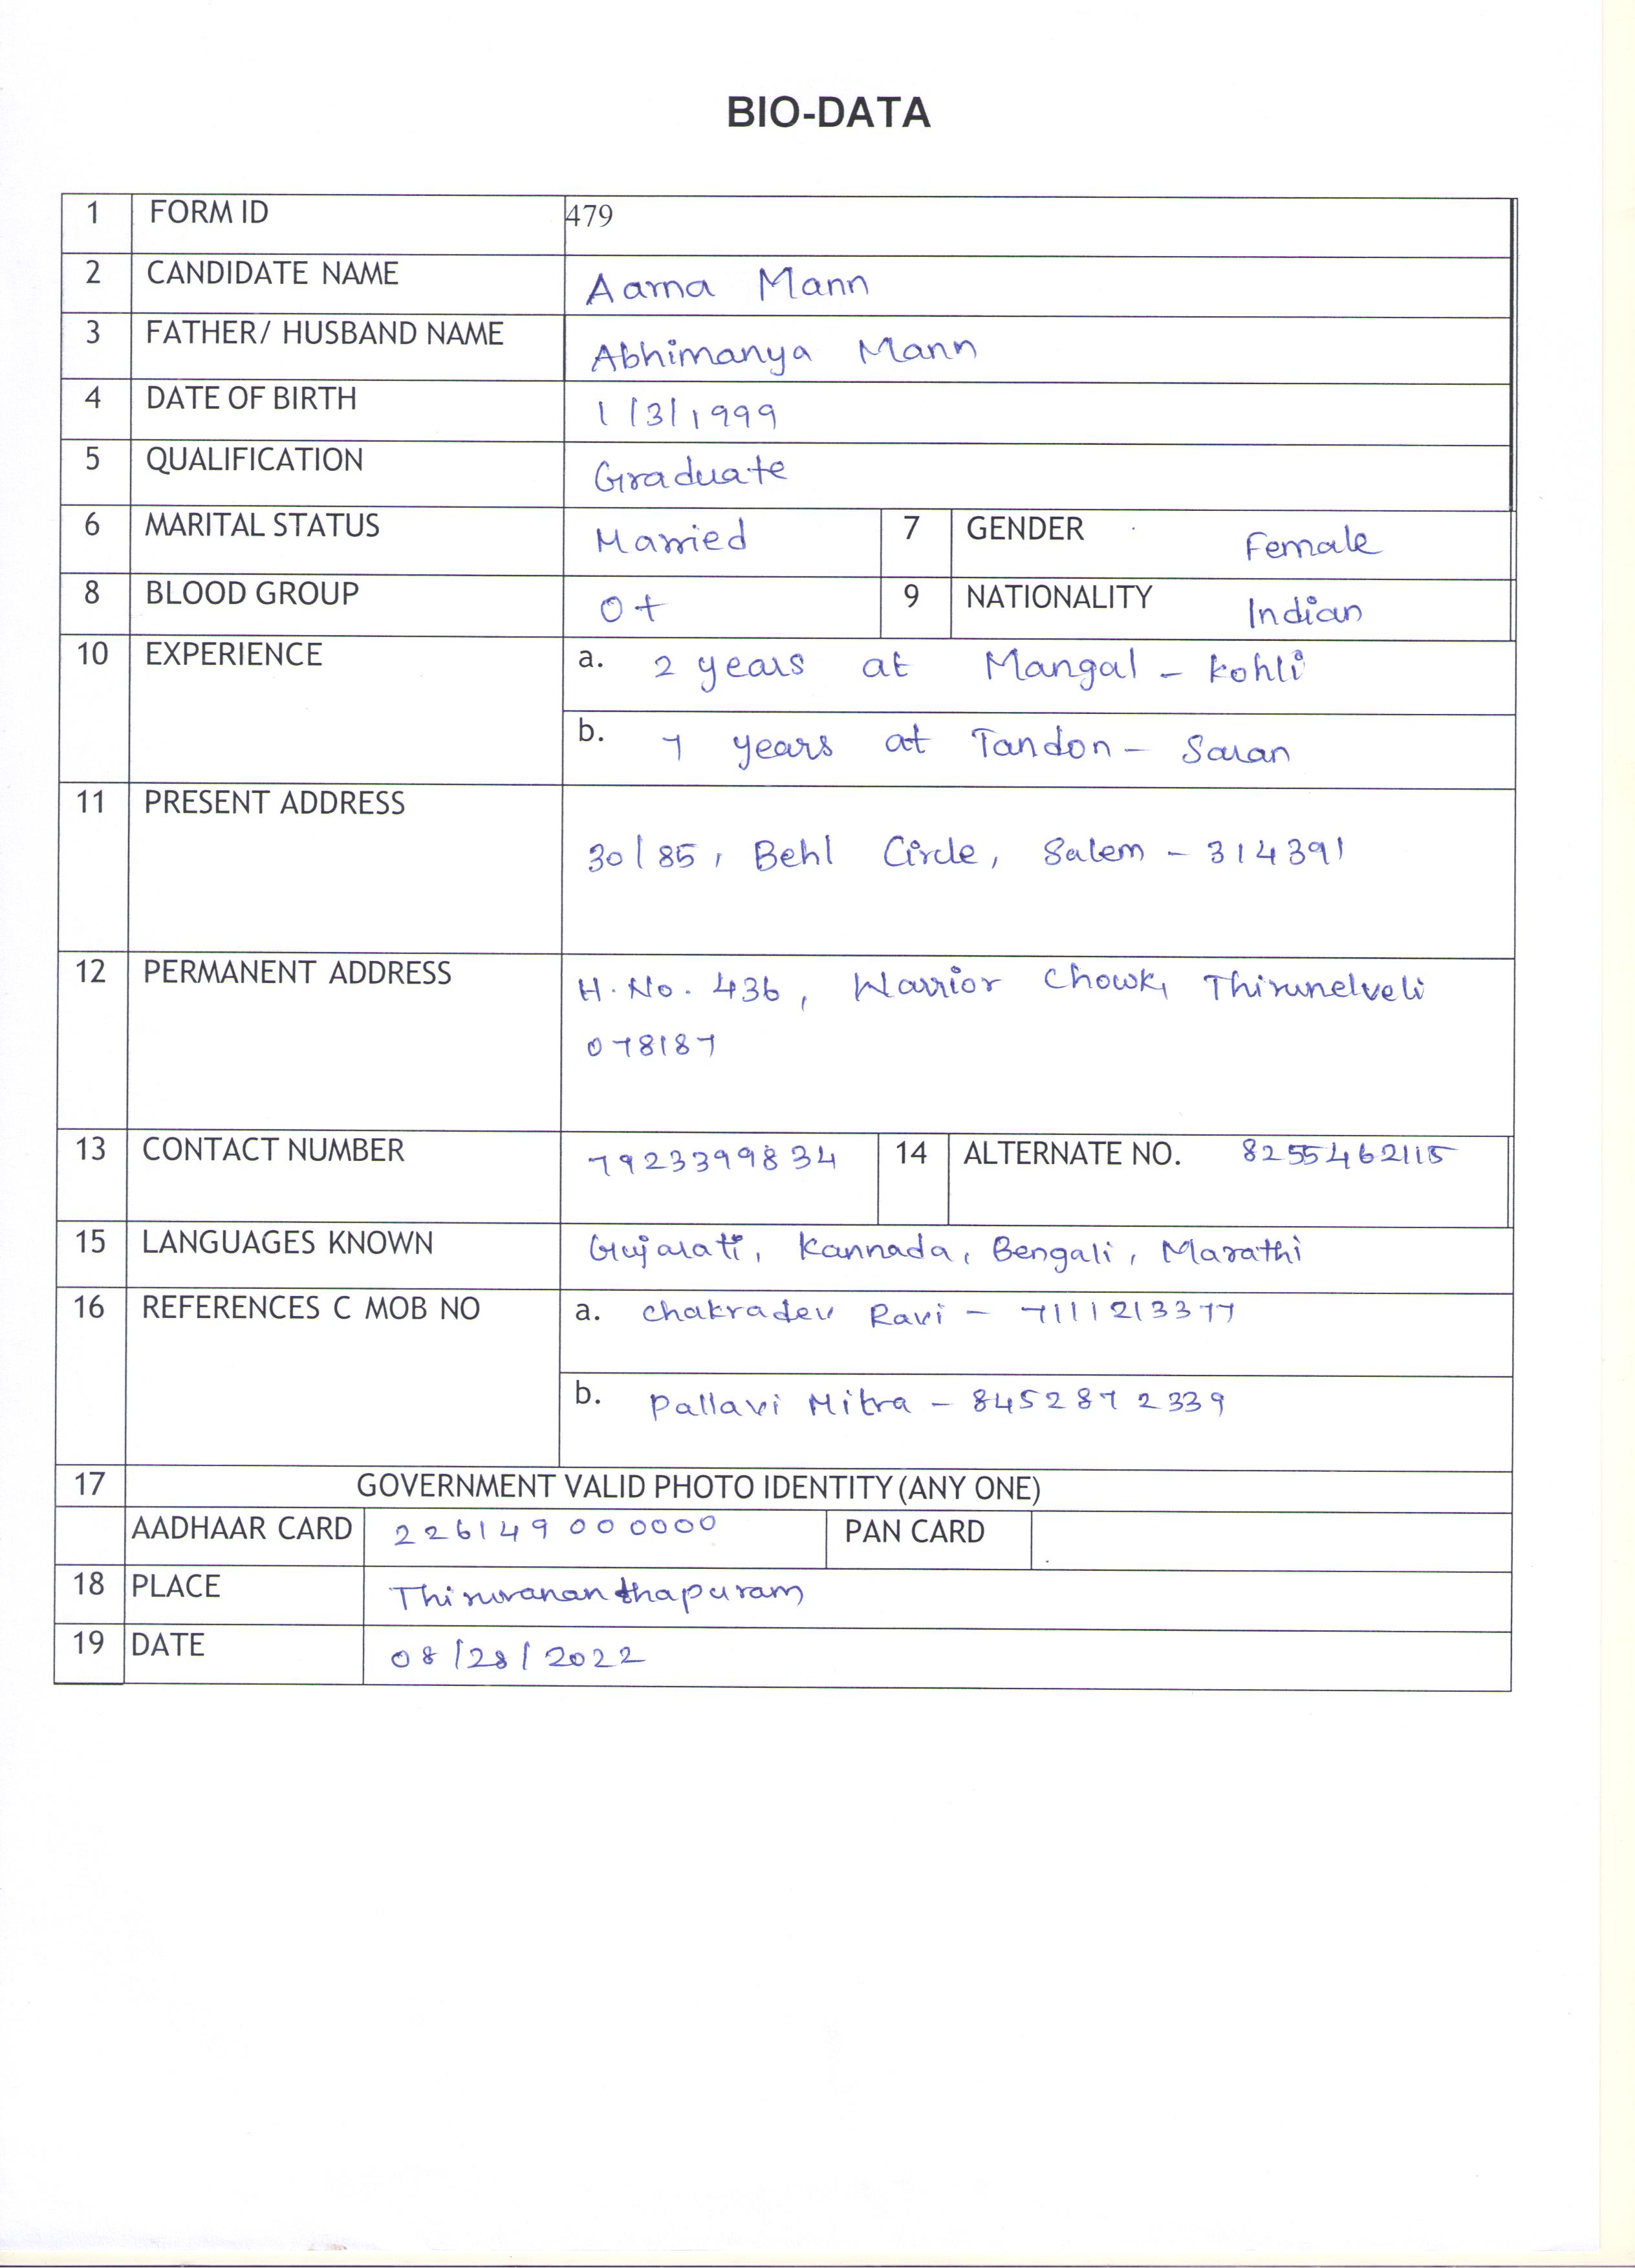 BIO-DATA
1 FORM ID 479
2 CANDIDATE NAME Aarna Mann
3 FATHER/ HUSBAND NAME Abhimanya Mann
4 DATE OF BIRTH 1/3/1999
5 QUALIFICATION Graduate
6 MARITAL STATUS Married 7 GENDER Female
8 BLOOD GROUP O+ 9 NATIONALITY Indian
10 EXPERIENCE a. 2 years at Mangal - Kohli
b. 7 years at Tandon - Saran
11 PRESENT ADDRESS
30/85, Behl Circle, Salem - 314391
12 PERMANENT ADDRESS H.No. 436, Warrior Chowk, Thirunelveli
078187
13 CONTACT NUMBER 7923399834 14 ALTERNATE NO. 8255462115
15 LANGUAGES KNOWN Gujarati, Kannada, Bengali, Marathi
16 REFERENCES C MOB NO a. Chakradev Ravi - 7111213377
b. Pallavi Mitra - 8452872339
17 GOVERNMENT VALID PHOTO IDENTITY (ANY ONE)
AADHAAR CARD 226149000000 PAN CARD
18 PLACE Thiruvananthapuram
19 DATE 08/28/2022